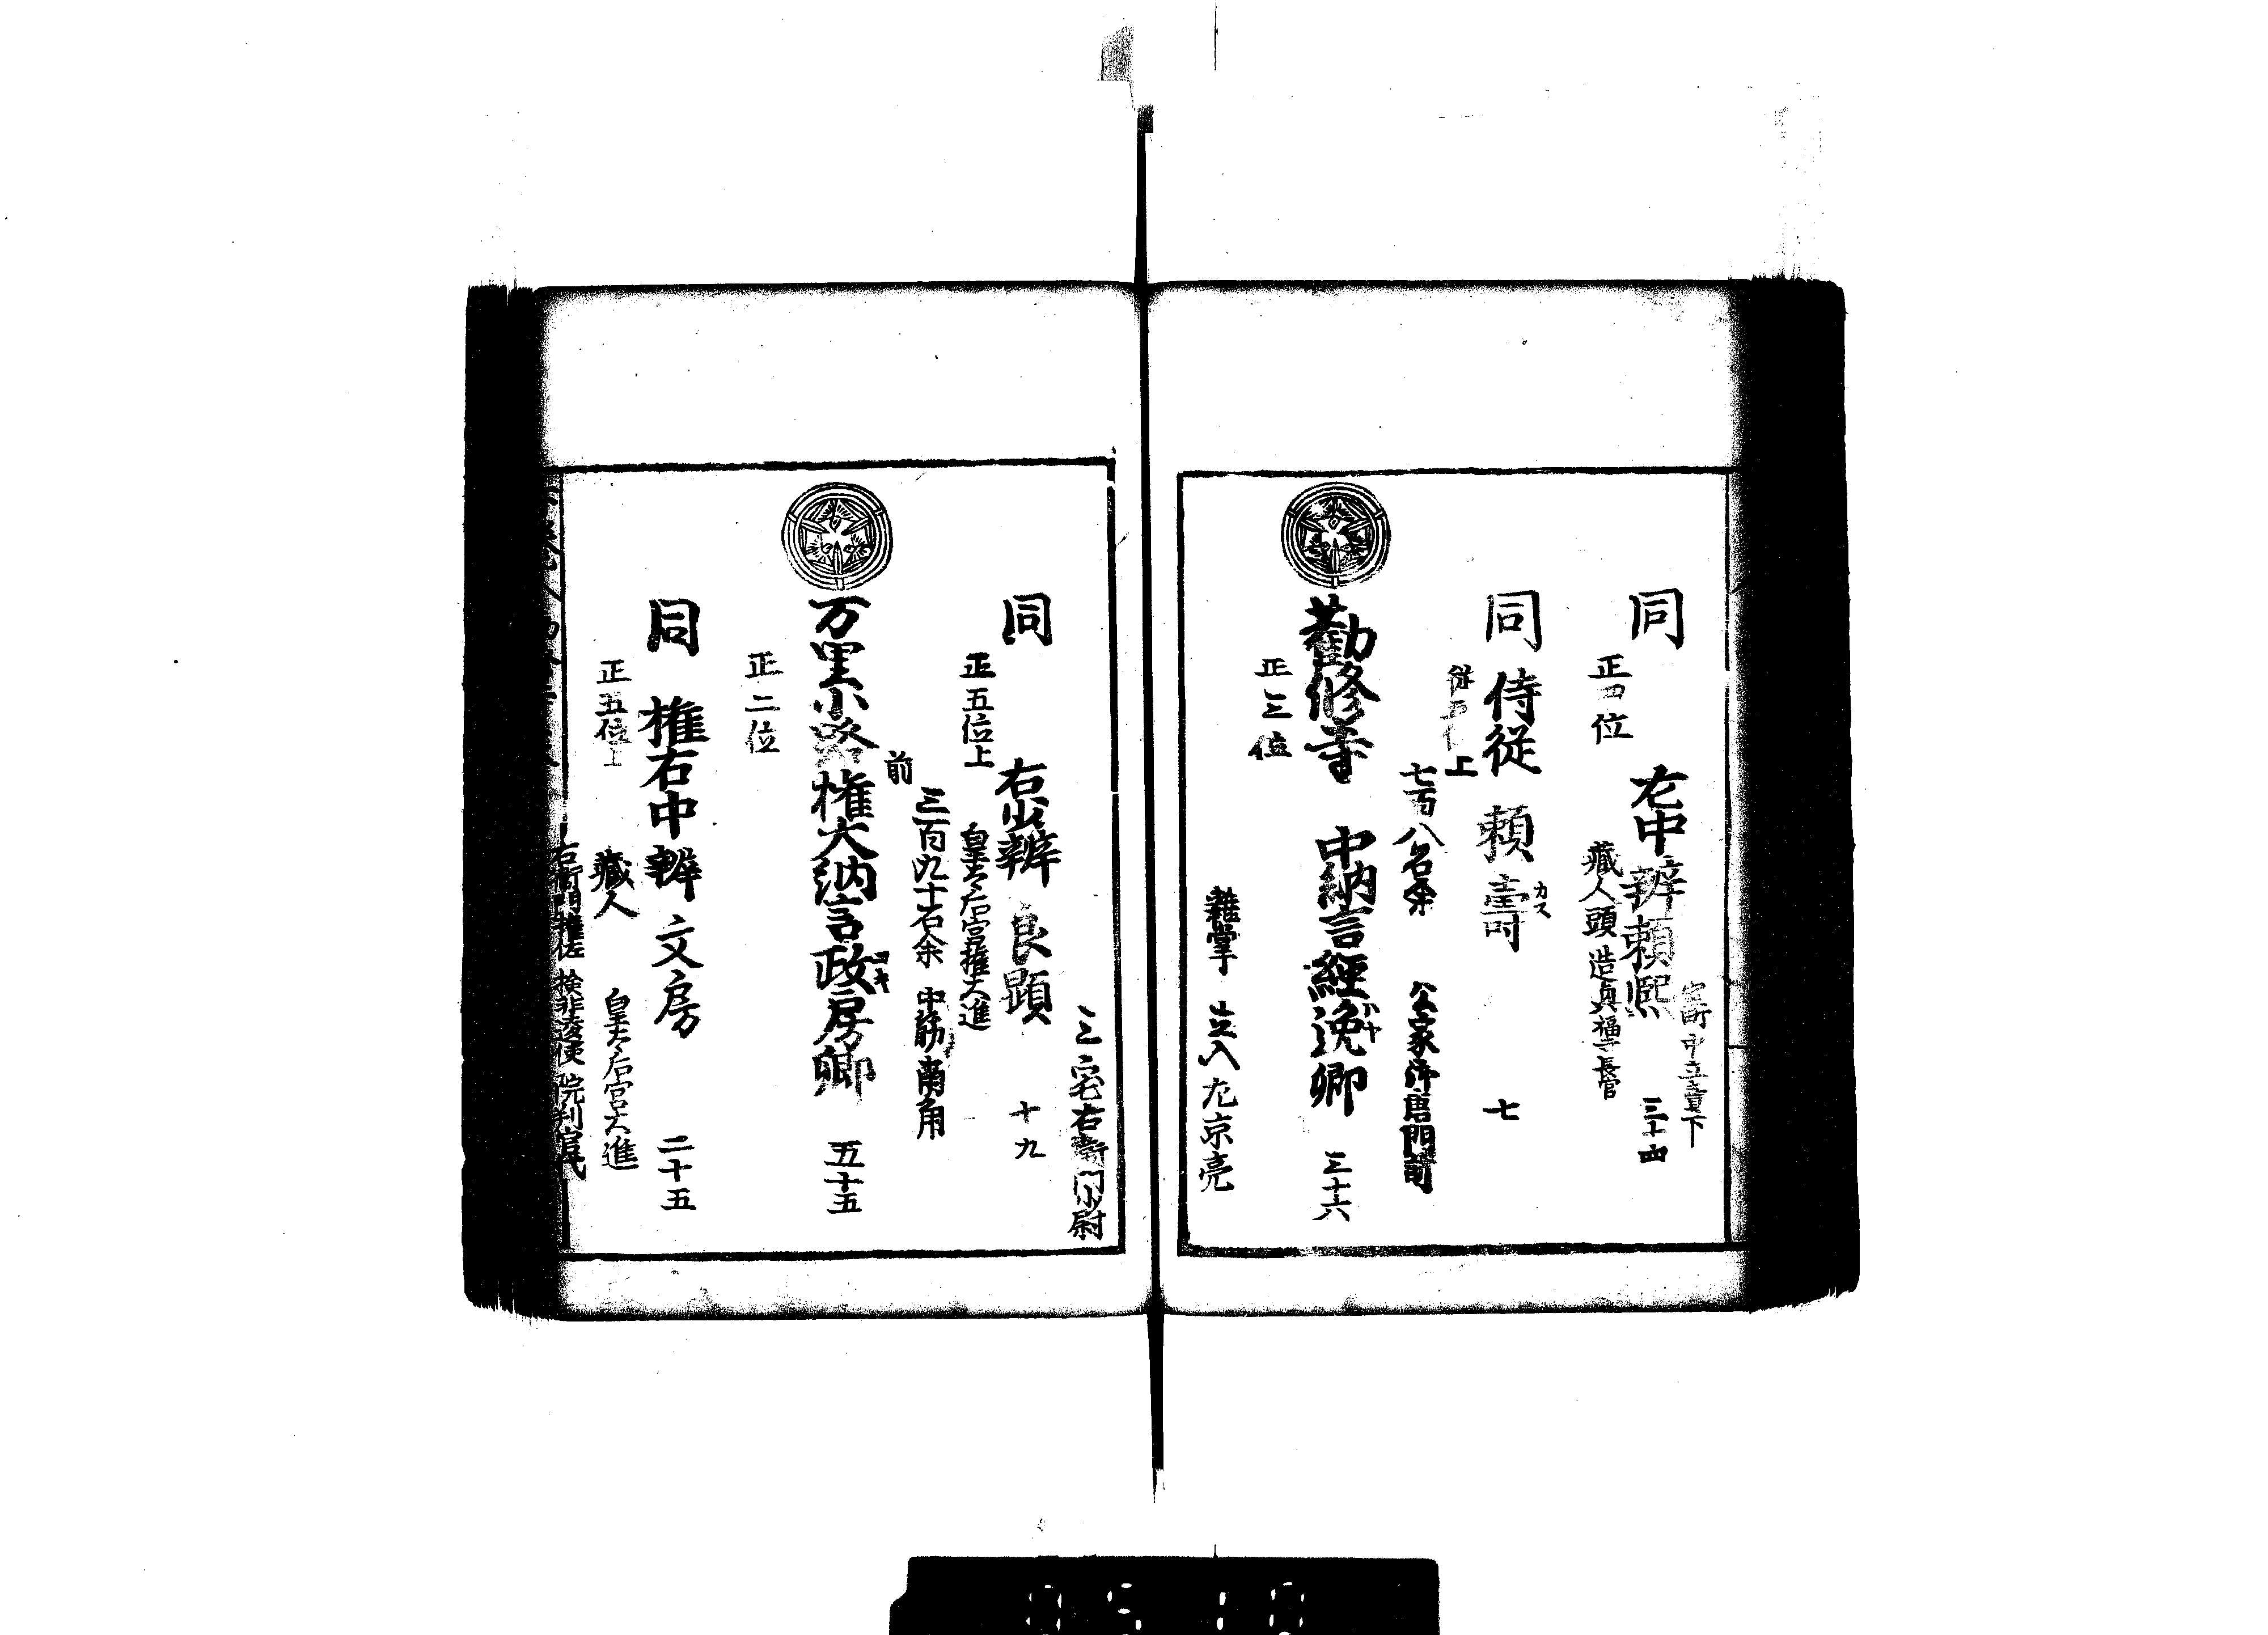 室町中立賣下
同 左中辨頼熈 三十四
正四位 藏人頭 造興福寺長官
同 侍従 頼壽 カス 七
上
七百八石余 公家御唐門前
勸修寺 中納言經逸卿 ハヤ 三十六
正三位
雜掌 立入左京亮
三宅右衛門少尉
同 右少辨 良顕 十九
正五位上 皇太后宮權大進
三百九十石余 中筋南角
前
万里小路 權大納言政房卿 コキ 五十五
正二位
同 權右中辨 文房 二十五
正五位上 藏人 皇太后宮大進
右衛門權佐 検非違使 院判官代
0510